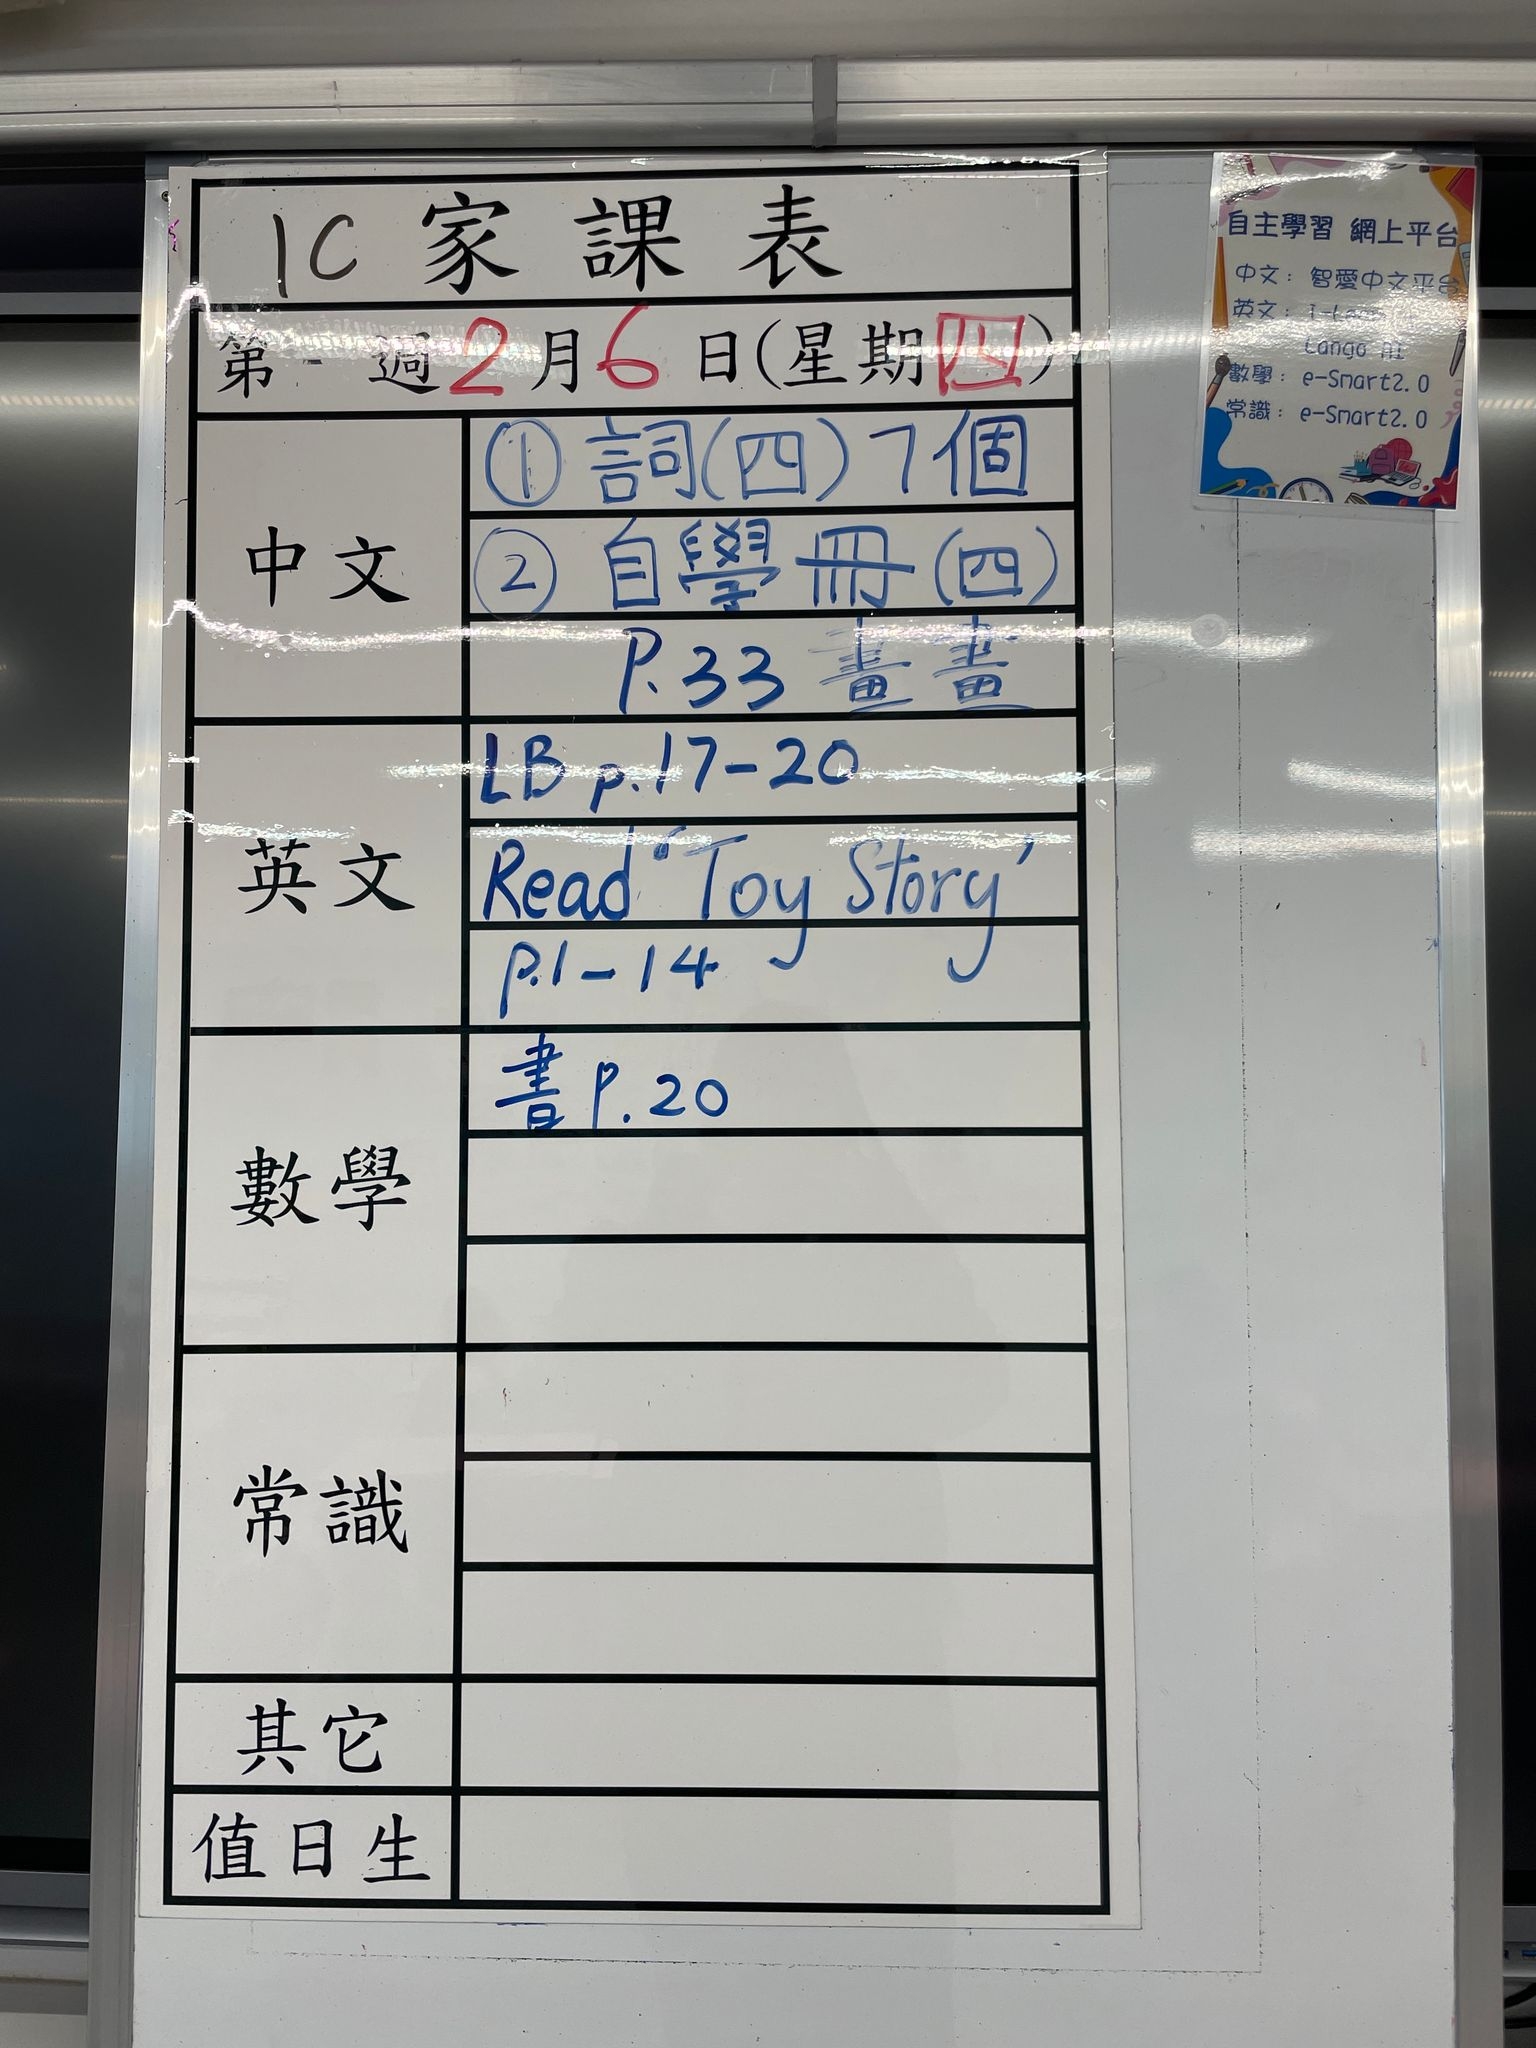 1C 家課表
第 週 2月6日(星期四)
中文
① 詞(四)7個
② 自學冊(四)
P.33 畫畫
英文
LB p.17-20
Read 'Toy Story'
p.1-14
數學
書 P.20
常識
其它
值日生
自主學習 網上平台
中文: 智愛中文平台
英文:
Lango AI
數學: e-Smart2.0
常識: e-Smart2.0